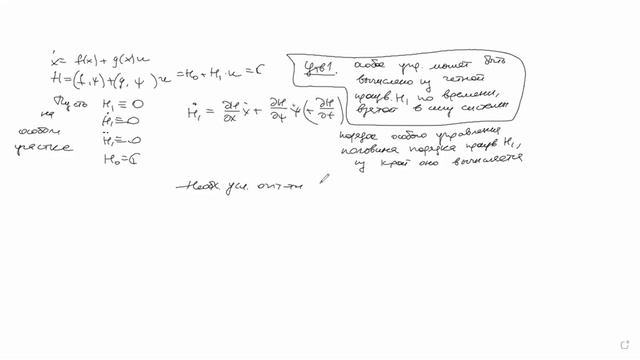 ẋ = f(x) + g(x)u
H = (f, ψ) + (g, ψ)u = H₀ + H₁·u = C
Пусть H₁ ≡ 0
на Ḣ₁ ≡ 0
особом Ḧ₁ ≡ 0
участке H₀ = C
Ḣ₁ = ∂H/∂x ẋ + ∂H/∂ψ ψ̇ (+ ∂H/∂t)
Утв1. особое упр. может быть
вычислено из четной
произв. H₁ по времени,
взятой в силу системы
порядок особого управления
половина порядка произв H₁,
из край оно вычисляется
Необх усл. опт-ти